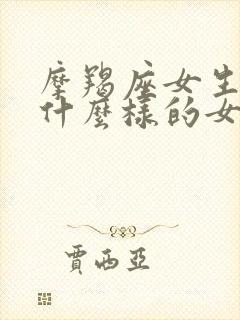 摩羯座女生
什麼樣的女
賈西亞